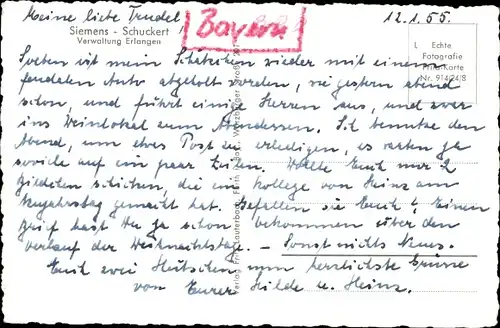 Meine liebe Trudel! 12.1.55.
Bayern
Siemens - Schuckert
Verwaltung Erlangen
L Echte
Fotografie
Foto-Karte
Nr. 914/24/8
Soeben ist mein Schätzchen wieder mit einem
Auto abgeholt worden, wie gestern abend
schon, und führt einige Herren aus, und zwar
ins Weinlokal zum Abendessen. Ich benutze den
Abend, um etwas Post zu erledigen, es warten ja
soviele auf ein paar Zeilen. Wollte Euch nur 2
Bildchen schicken, die ein Kollege von Heinz am
Neujahrstag gemacht hat. Gefallen sie Euch? Einen
Brief hast Du ja schon bekommen über den
Verlauf der Weihnachtstage. – Sonst nichts Neues.
Euch zwei nun herzlichste Grüsse
von Eurer Hilde u. Heinz.